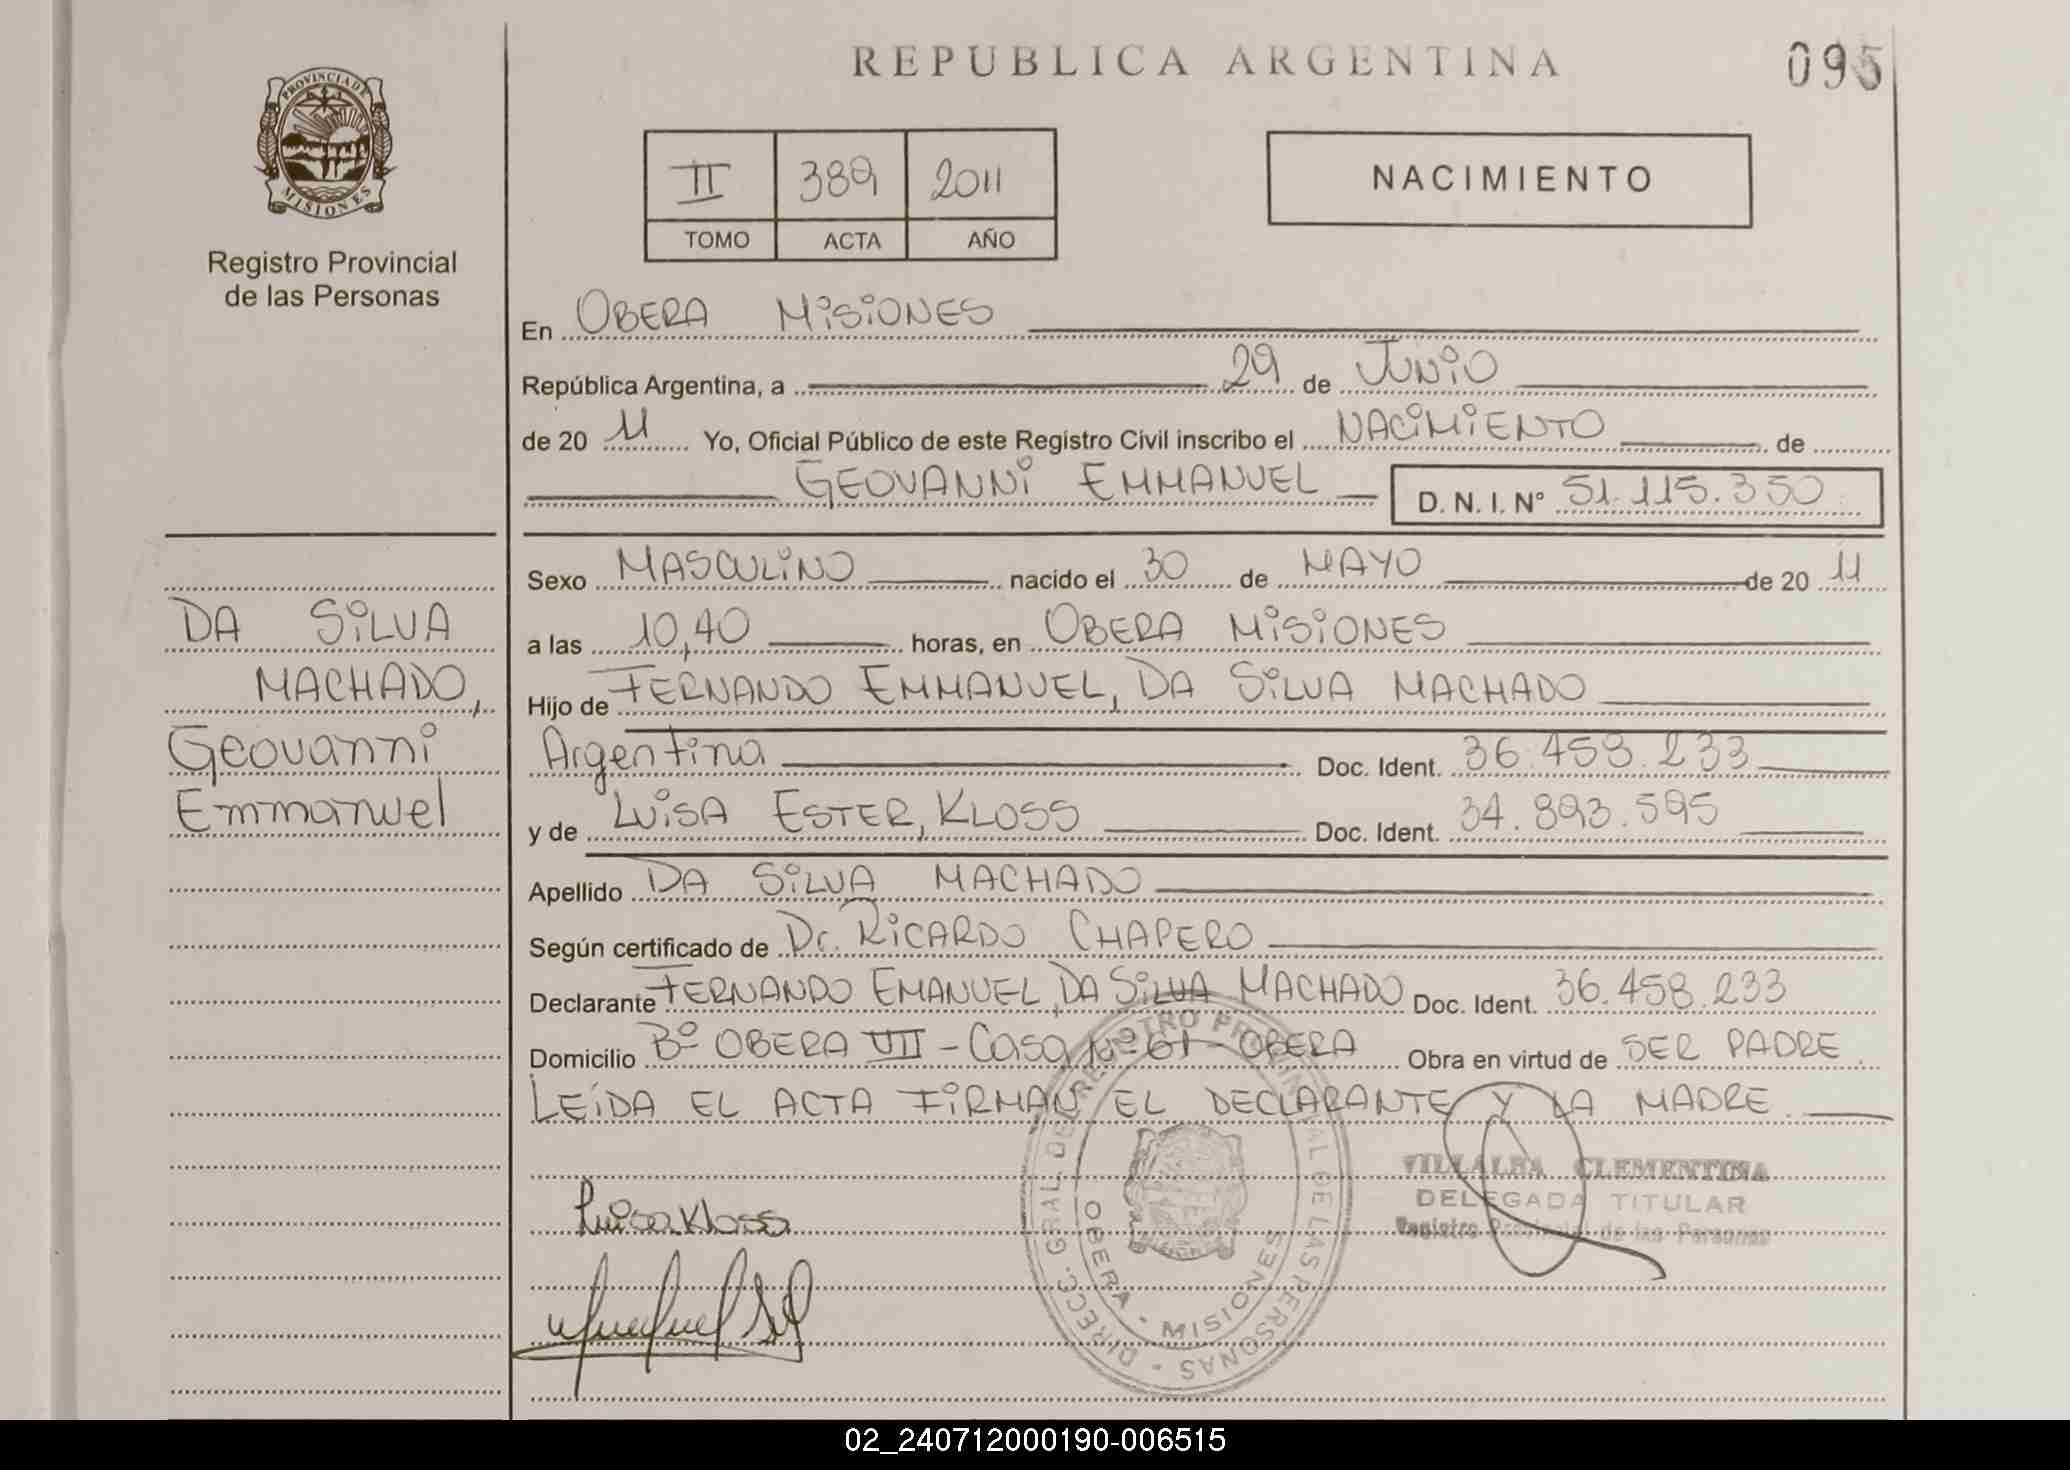 REPUBLICA ARGENTINA
095
PROVINCIA DE
MISIONES
Registro Provincial
de las Personas
II 389 2011
TOMO ACTA AÑO
NACIMIENTO
En OBERA MISIONES
República Argentina, a 29 de JUNIO
de 20 11 Yo, Oficial Público de este Registro Civil inscribo el NACIMIENTO de
GEOVANNI EMMANUEL D. N. I. N° 51.115.350
Sexo MASCULINO nacido el 30 de MAYO de 20 11
a las 10,40 horas, en OBERA MISIONES
Hijo de FERNANDO EMMANUEL, DA SILVA MACHADO
Argentina Doc. Ident. 36.458.233
y de LUISA ESTER, KLOSS Doc. Ident. 34.893.595
Apellido DA SILVA MACHADO
Según certificado de Dr. RICARDO CHAPERO
Declarante FERNANDO EMANUEL, DA SILVA MACHADO Doc. Ident. 36.458.233
Domicilio Bº OBERA VII - Casa Nº 61 - OBERA Obra en virtud de SER PADRE.
LEÍDA EL ACTA FIRMAN EL DECLARANTE Y LA MADRE.
DA SILVA
MACHADO,
Geovanni
Emmanuel
Luisa Kloss
DIRECC. GRAL. DEL REGISTRO PROVINCIAL DE LAS PERSONAS
OBERA - MISIONES
VILLALBA CLEMENTINA
DELEGADA TITULAR
Registro Provincial de las Personas
02_240712000190-006515